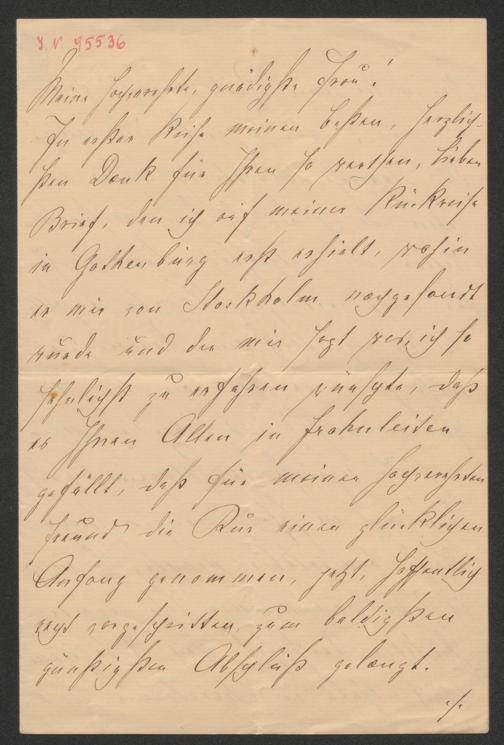 I. N. 95536
Meine hochverehrte, gnädigste Frau!
In erster Reihe meinen besten, herzlich-
sten Dank für Ihren so werthen, lieben
Brief, den ich auf meiner Rückreise
in Gothenburg erst erhielt, wohin
er mir von Stockholm nachgesandt
wurde und der mir sagt was ich so
sehnlichst zu erfahren wünschte, daß
es Ihnen Allen in Frohnleiten
gefällt, daß für meinen hochverehrten
Freund die Kur einen glücklichen
Anfang genommen, jetzt, hoffentlich
recht vorgeschritten, zum baldigsten
günstigsten Abschluß gelangt.
./.